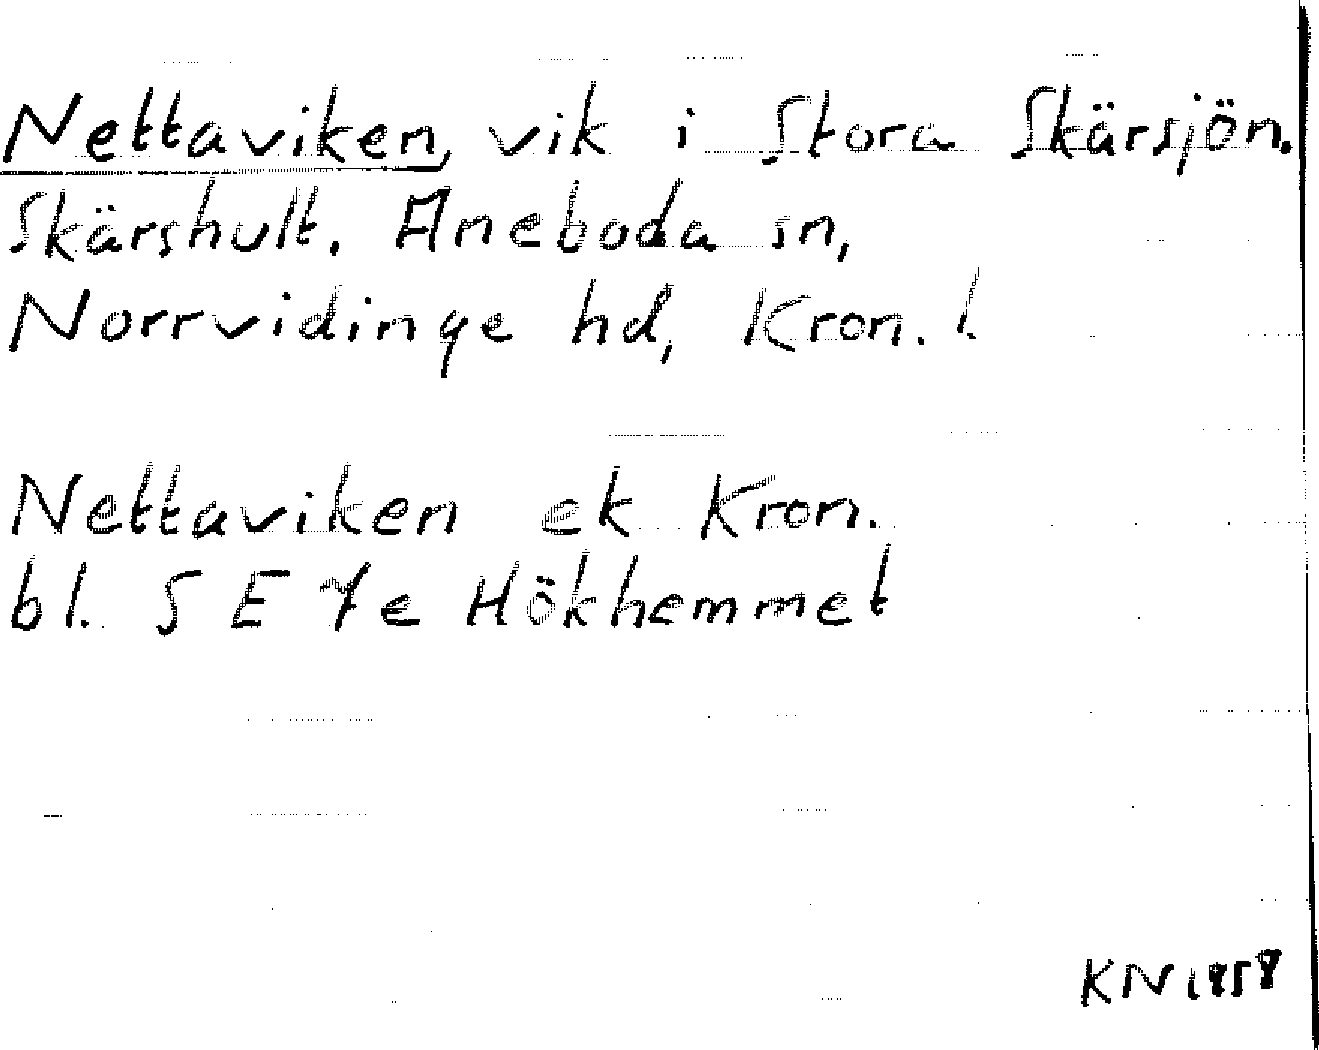 Nettaviken, vik i Stora Skärsjön.
Skärshult. Aneboda sn,
Norrvidinge hd, Kron. l.
Nettaviken ek Kron.
bl. 5 E 7e Hökhemmet
KN 1958